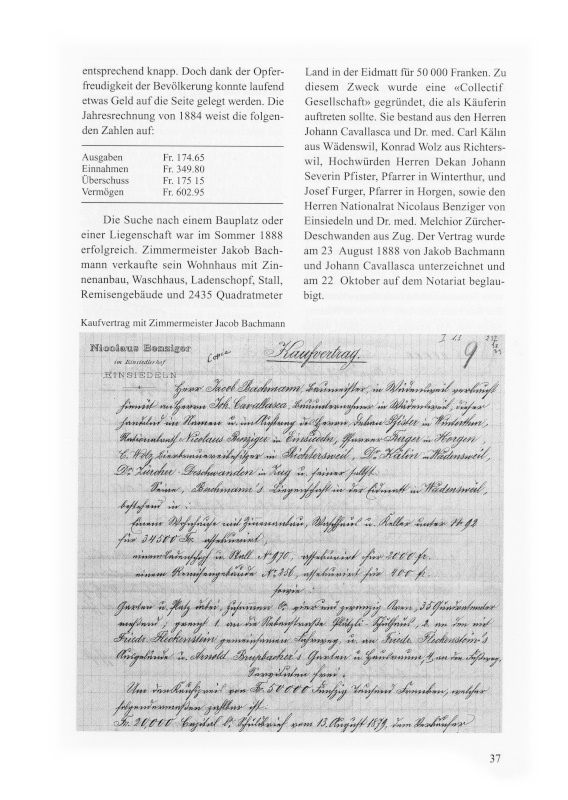 entsprechend knapp. Doch dank der Opfer-
freudigkeit der Bevölkerung konnte laufend
etwas Geld auf die Seite gelegt werden. Die
Jahresrechnung von 1884 weist die folgen-
den Zahlen auf:
Ausgaben Fr. 174.65
Einnahmen Fr. 349.80
Überschuss Fr. 175 15
Vermögen Fr. 602.95
Die Suche nach einem Bauplatz oder
einer Liegenschaft war im Sommer 1888
erfolgreich. Zimmermeister Jakob Bach-
mann verkaufte sein Wohnhaus mit Zin-
nenanbau, Waschhaus, Ladenschopf, Stall,
Remisengebäude und 2435 Quadratmeter
Land in der Eidmatt für 50 000 Franken. Zu
diesem Zweck wurde eine «Collectif
Gesellschaft» gegründet, die als Käuferin
auftreten sollte. Sie bestand aus den Herren
Johann Cavallasca und Dr. med. Carl Kälin
aus Wädenswil, Konrad Wolz aus Richters-
wil, Hochwürden Herren Dekan Johann
Severin Pfister, Pfarrer in Winterthur, und
Josef Furger, Pfarrer in Horgen, sowie den
Herren Nationalrat Nicolaus Benziger von
Einsiedeln und Dr. med. Melchior Zürcher-
Deschwanden aus Zug. Der Vertrag wurde
am 23 August 1888 von Jakob Bachmann
und Johann Cavallasca unterzeichnet und
am 22 Oktober auf dem Notariat beglau-
bigt.
Kaufvertrag mit Zimmermeister Jacob Bachmann
Nicolaus Benziger
im Einsiedlerhof
EINSIEDELN
Copie
Kaufvertrag.
9
Herr Jacob Bachmann, Baumeister, in Wädensweil verkauft
hiemit an Herrn Joh. Cavallasca, Bauunternehmer in Wädensweil, dieser
handelnd im Namen u. im Auftrag der Herren Dekan Pfister in Winterthur,
Nationalrath Nicolaus Benziger in Einsiedeln, Pfarrer Furger in Horgen,
C. Wolz, Bierbrauereibesitzer in Richtersweil, Dr. Kälin in Wädensweil,
Dr. Zürcher-Deschwanden in Zug u. seiner selbst.
Seine, Bachmann's Liegenschaft in der Eidmatt in Wädensweil,
bestehend in:
Einem Wohnhause mit Zinnenanbau, Waschhaus u. Keller unter No 92
für 34500 Fr. assekurirt,
einem Ladenschopf u. Stall No 970, assekurirt für 2000 fr.
einem Remisengebäude No 256, assekurirt für 400 fr.
sowie:
Garten u. Platz dabei, zusammen vier und zwanzig Aren, 35 Quadratmeter
Friede Fleckenstein gemeinsamen u. an Friede Fleckenstein's
u. Arnold Brupbacher's Garten u.
Servituten frei.
Um den Kaufpreis von Fr. 50000 Fünfzig Tausend Franken, welcher
folgendermaßen zahlbar ist:
Fr. 20,000 Capital Schuldbrief vom 13. August 1879, dem Verkäufer
37